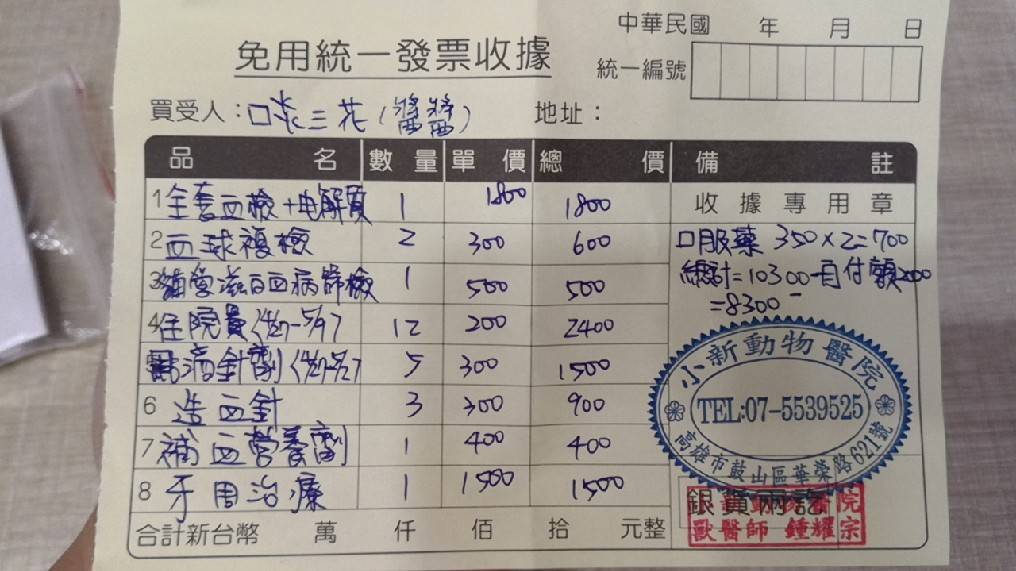 中華民國 年 月 日
免用統一發票收據
統一編號
買受人：口炎三花(醬醬) 地址：
品名 數量 單價 總價 備註
1 全套血檢+电解質 1 1800 1800 收據專用章
2 血球複檢 2 300 600 口服藥 350×2=700
3 貓愛滋白血病篩檢 1 500 500 總計=10300-自付額2000
=8300-
4 住院費 12 200 2400
5 點滴針劑 5 300 1500
6 造血針 3 300 900
7 補血營養劑 1 400 400
8 牙周治療 1 1500 1500
合計新台幣 萬 仟 佰 拾 元整
小新動物醫院
TEL:07-5539525
高雄市鼓山區華榮路621號
銀貨兩訖
院
獸醫師 鍾耀宗